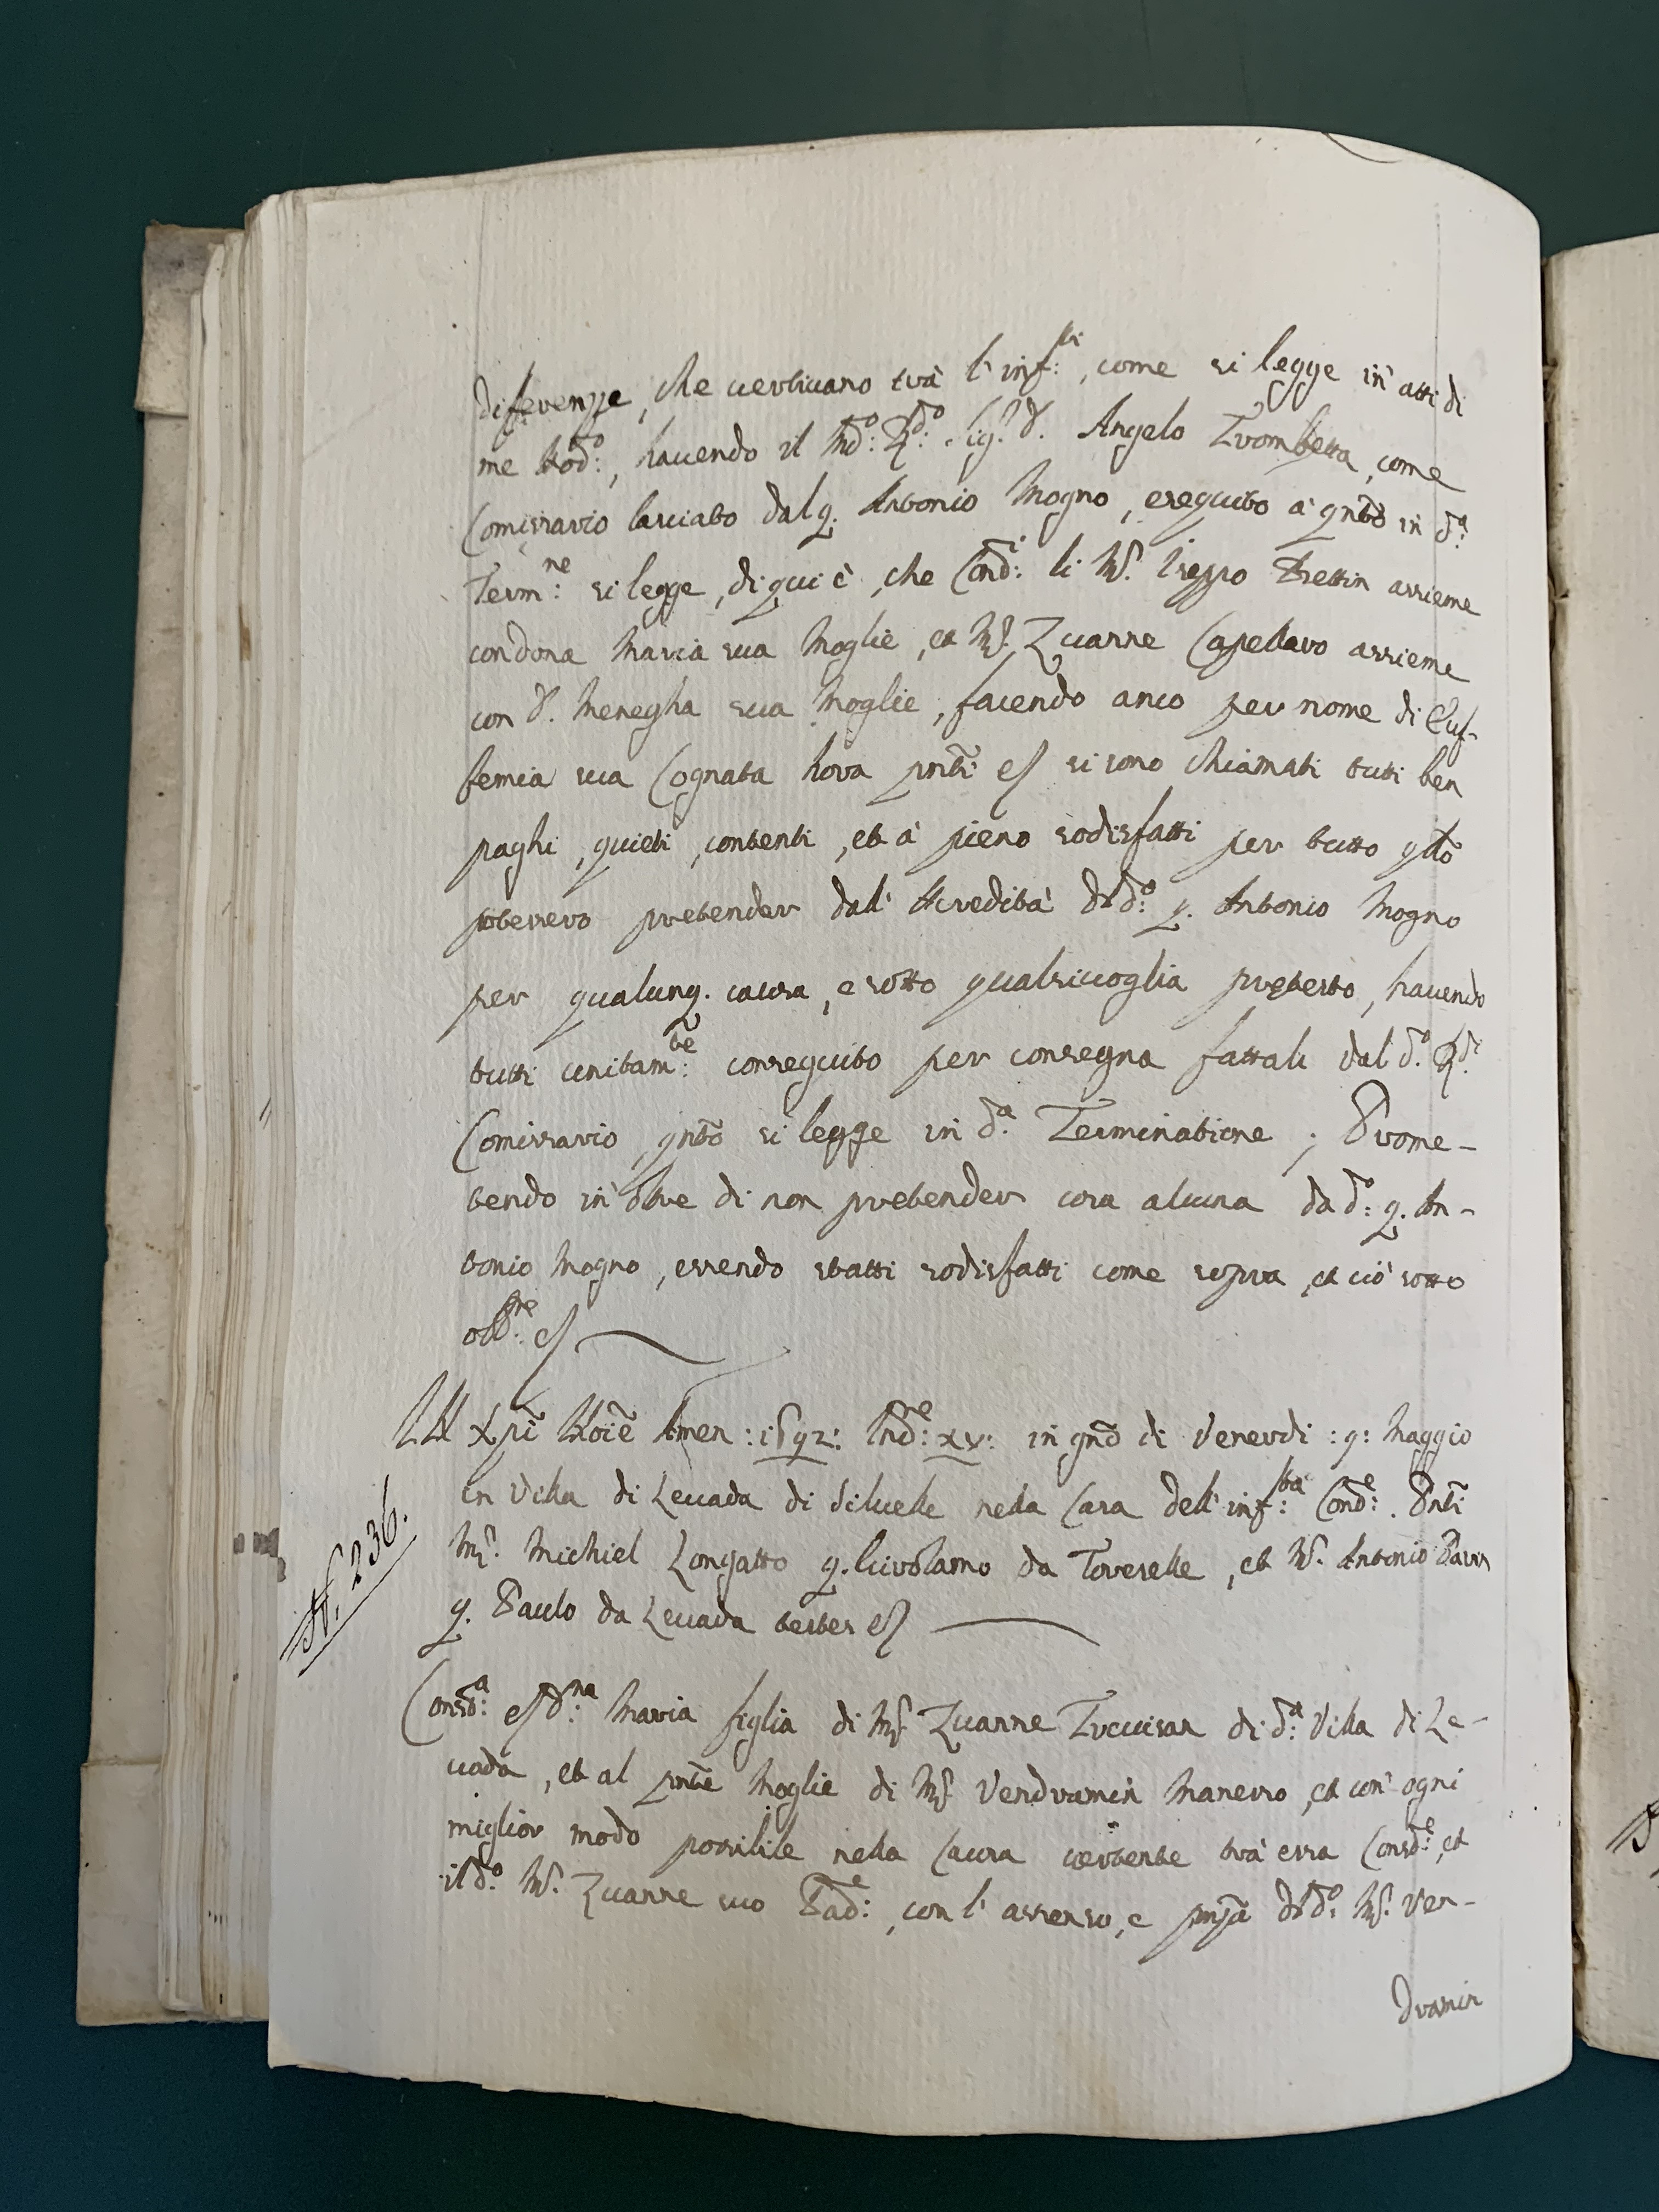 diferenze, che vertivano trà l' inf:ti, come si legge in atti di
me Nod:o, havendo il M:d:o R:do Sig:r D. Angelo Trombetta, come
Comissario lasciato dal q. Antonio Mogno, eseguito a' qnto in d:a
Term:ne si legge, di qui è, che Cond:i li M:s. Iseppo Trettin assieme
con dona Maria sua Moglie, et M:s. Zuanne Capellaro assieme
con D. Menegha sua Moglie, facendo anco per nome di Euf-
femia sua Cognata hora pnti et si sono chiamati tutti ben
paghi, quieti, contenti, et à pieno sodisfatti per tutto qto
potessero pretender dall' Heredità d:d:o q. Antonio Mogno
per qualunq. causa, e sotto qualsivoglia pretesto, havendo
tutti unitam:te conseguito per consegna fattali dal d:o R:do
Comissario, qnto si legge in d:a Terminatione; Prome-
tendo in oltre di non pretender cosa alcuna da d:o q. An-
tonio Mogno, essendo statti sodisfatti come sopra, et ciò sotto
obb:ne et
Xpi Noie Amen: 1692: Ind:ne XV: in gno di Venerdi :9: Maggio
in Villa di Levada di Silvelle nella Casa dell' inf:ta Cond:e. Pnti
M:s. Michiel Longatto q. Girolamo da Torreselle, et M:s. Antonio Pavin
q. Paulo da Levada testes et
N. 236.
Consd:a et D:na Maria figlia di M:s Zuanne Trevisan di d:a Villa di Le-
vada, et al pnte Moglie di M:s Vendramin Manesso, et con ogni
miglior modo possibile nella Causa vertente trà essa Consd:e, et
il d:o M:s. Zuanne suo Pad:e, con l' assenso, e pnza d:d:o M:s. Ven-
dramin